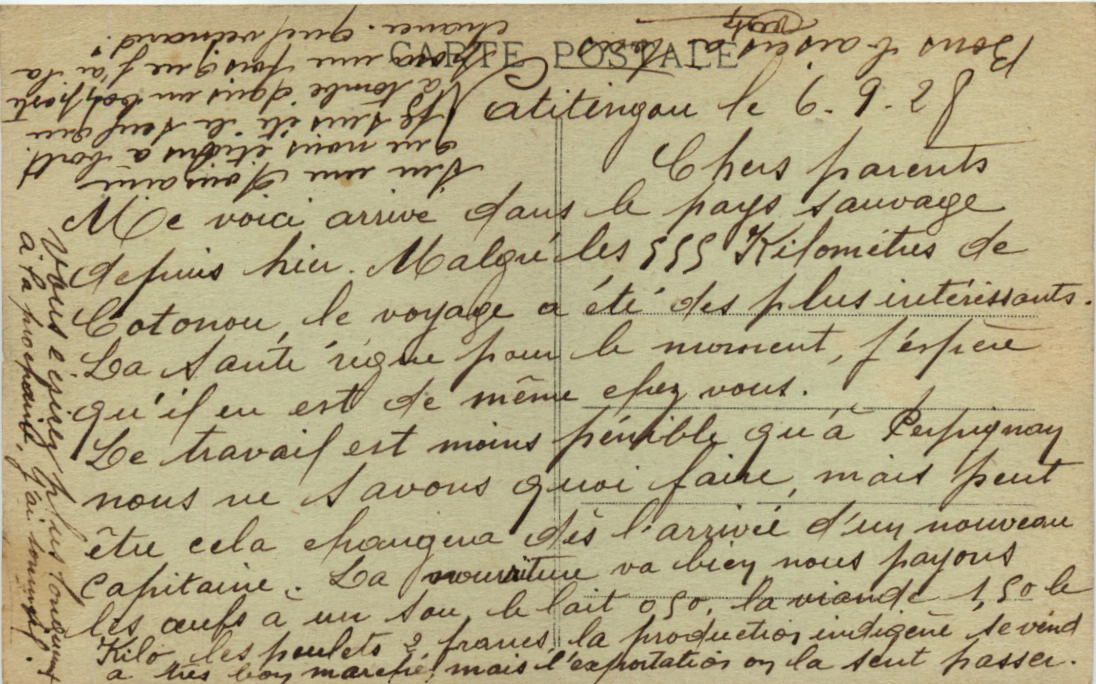 CARTE POSTALE
Natitingou le 6.9.28
Chers parents
Me voici arrivé dans le pays sauvage
depuis hier. Malgré les 555 Kilomètres de
Cotonou, le voyage a été des plus intéressants.
La santé règne pour le moment, j'espère
qu'il en est de même chez vous.
Le travail est moins pénible qu'à Perpignan
nous ne savons quoi faire, mais peut
être cela changera dès l'arrivée d'un nouveau
Capitaine. La nourriture va bien nous payons
les œufs à un sou, le lait 0,50, la viande 1,50 le
Kilo, les poulets 2 francs, la production indigène se vend
à très bon marché, mais l'exportation on la sent passer.
Vous écrirez plus longuement
à la prochaine, j'ai sommeil.
Sur une dizaine
que nous étions à bord
Je suis été le seul qui
a tombé dans un bon poste
une fois que j'ai la
chance. quel veinard!
Bons baisers à tous